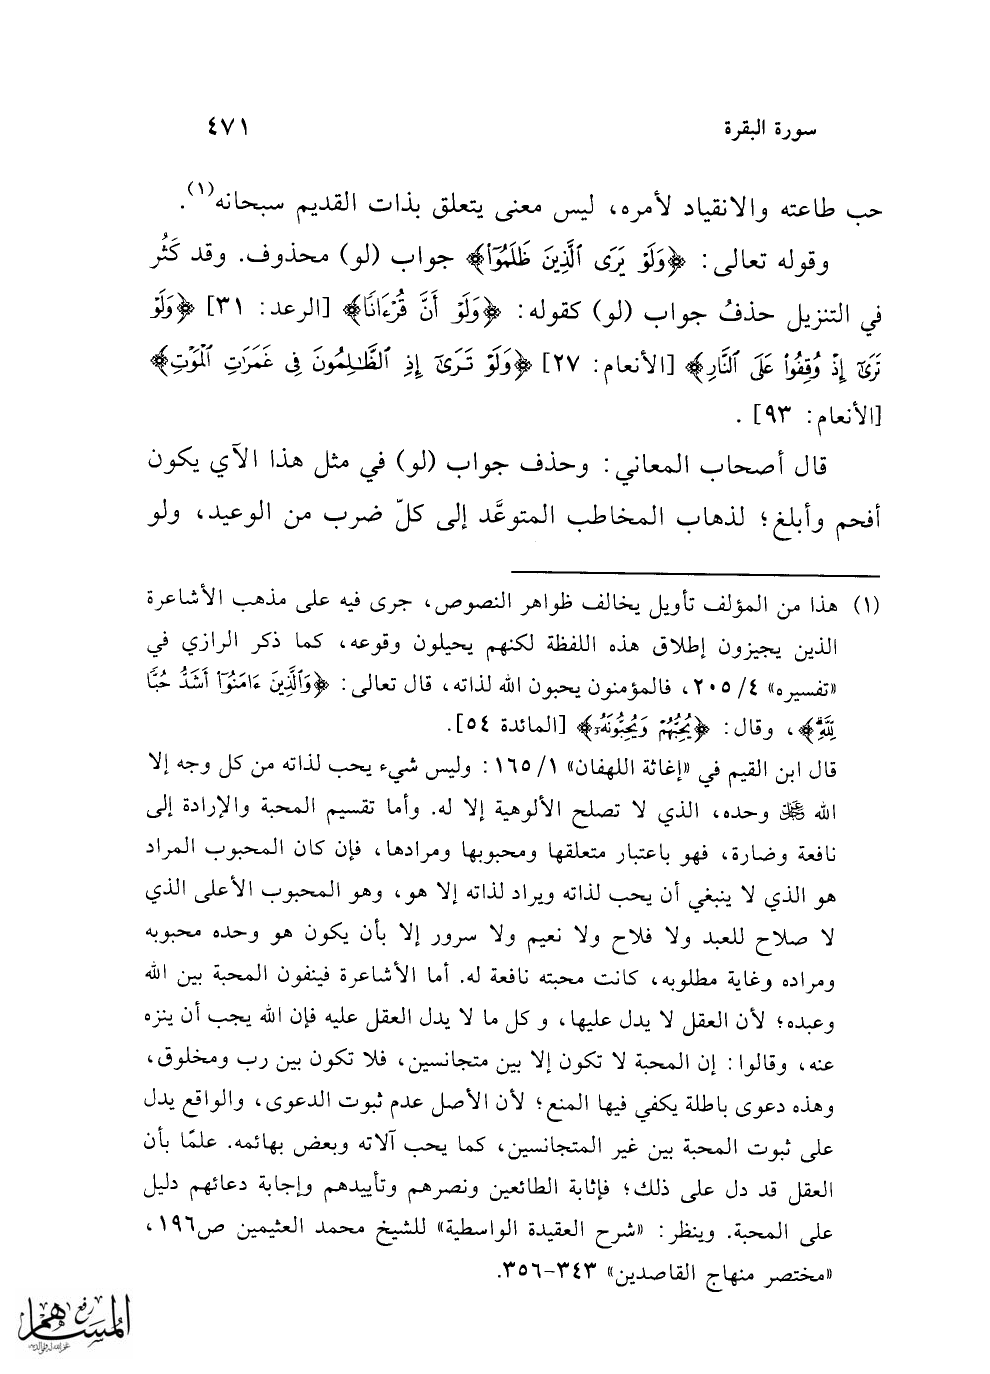 سورة البقرة ٤٧١
حب طاعته والانقياد لأمره، ليس معنى يتعلق بذات القديم سبحانه(١).
وقوله تعالى: ﴿وَلَوْ يَرَى ٱلَّذِينَ ظَلَمُوٓا۟﴾ جواب (لو) محذوف. وقد كَثُر
في التنزيل حذفُ جواب (لو) كقوله: ﴿وَلَوْ أَنَّ قُرْءَانًا﴾ [الرعد: ٣١] ﴿وَلَوْ
تَرَىٰٓ إِذْ وُقِفُوا۟ عَلَى ٱلنَّارِ﴾ [الأنعام: ٢٧] ﴿وَلَوْ تَرَىٰٓ إِذِ ٱلظَّـٰلِمُونَ فِى غَمَرَٰتِ ٱلْمَوْتِ﴾
[الأنعام: ٩٣] .
قال أصحاب المعاني: وحذف جواب (لو) في مثل هذا الآي يكون
أفحم وأبلغ؛ لذهاب المخاطب المتوعَّد إلى كلّ ضرب من الوعيد، ولو
(١) هذا من المؤلف تأويل يخالف ظواهر النصوص، جرى فيه على مذهب الأشاعرة
الذين يجيزون إطلاق هذه اللفظة لكنهم يحيلون وقوعه، كما ذكر الرازي في
«تفسيره» ٤/ ٢٠٥، فالمؤمنون يحبون الله لذاته، قال تعالى: ﴿وَٱلَّذِينَ ءَامَنُوٓا۟ أَشَدُّ حُبًّا
لِّلَّهِ﴾، وقال: ﴿يُحِبُّهُمْ وَيُحِبُّونَهُۥٓ﴾ [المائدة ٥٤].
قال ابن القيم في «إغاثة اللهفان» ١/ ١٦٥: وليس شيء يحب لذاته من كل وجه إلا
الله ﷻ وحده، الذي لا تصلح الألوهية إلا له. وأما تقسيم المحبة والإرادة إلى
نافعة وضارة، فهو باعتبار متعلقها ومحبوبها ومرادها، فإن كان المحبوب المراد
هو الذي لا ينبغي أن يحب لذاته ويراد لذاته إلا هو، وهو المحبوب الأعلى الذي
لا صلاح للعبد ولا فلاح ولا نعيم ولا سرور إلا بأن يكون هو وحده محبوبه
ومراده وغاية مطلوبه، كانت محبته نافعة له. أما الأشاعرة فينفون المحبة بين الله
وعبده؛ لأن العقل لا يدل عليها، و كل ما لا يدل العقل عليه فإن الله يجب أن ينزه
عنه، وقالوا: إن المحبة لا تكون إلا بين متجانسين، فلا تكون بين رب ومخلوق،
وهذه دعوى باطلة يكفي فيها المنع؛ لأن الأصل عدم ثبوت الدعوى، والواقع يدل
على ثبوت المحبة بين غير المتجانسين، كما يحب آلاته وبعض بهائمه. علمًا بأن
العقل قد دل على ذلك؛ فإثابة الطائعين ونصرهم وتأييدهم وإجابة دعائهم دليل
على المحبة. وينظر: «شرح العقيدة الواسطية» للشيخ محمد العثيمين ص١٩٦،
«مختصر منهاج القاصدين» ٣٤٣-٣٥٦.